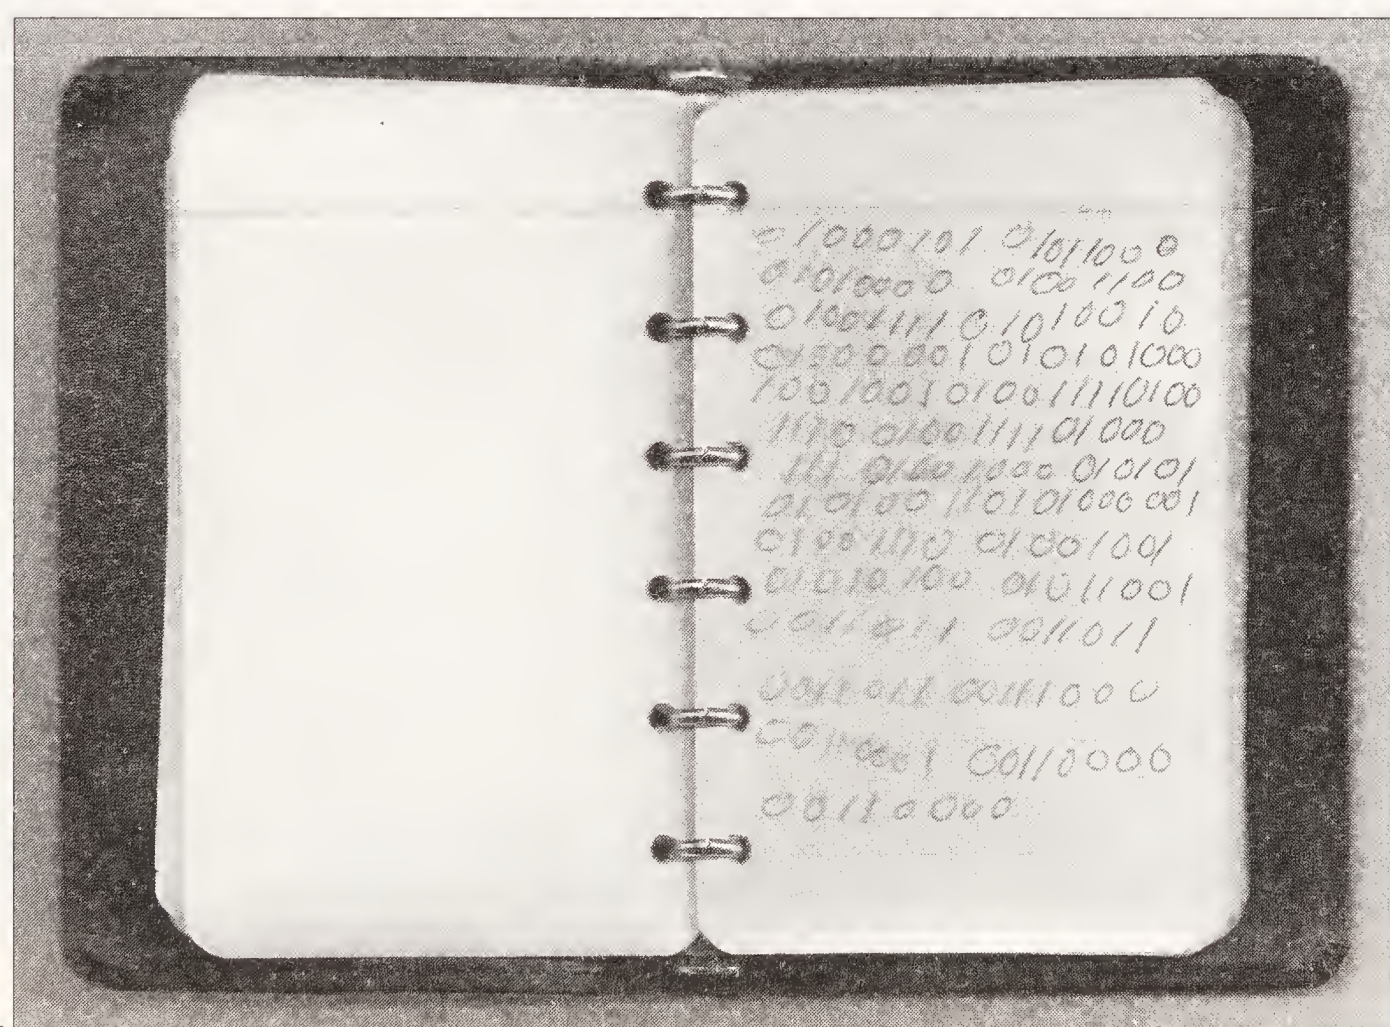 01000101 01011000
01010000 01001100
01001111 01010010
01000001 010101000
1001001 010011110100
1110 0100111101000
111 01001000 010101
010100 110101000001
01001110 01001001
01010100 01011001
0011011 0011011
0011011 00111000
00110001 00110000
00110000